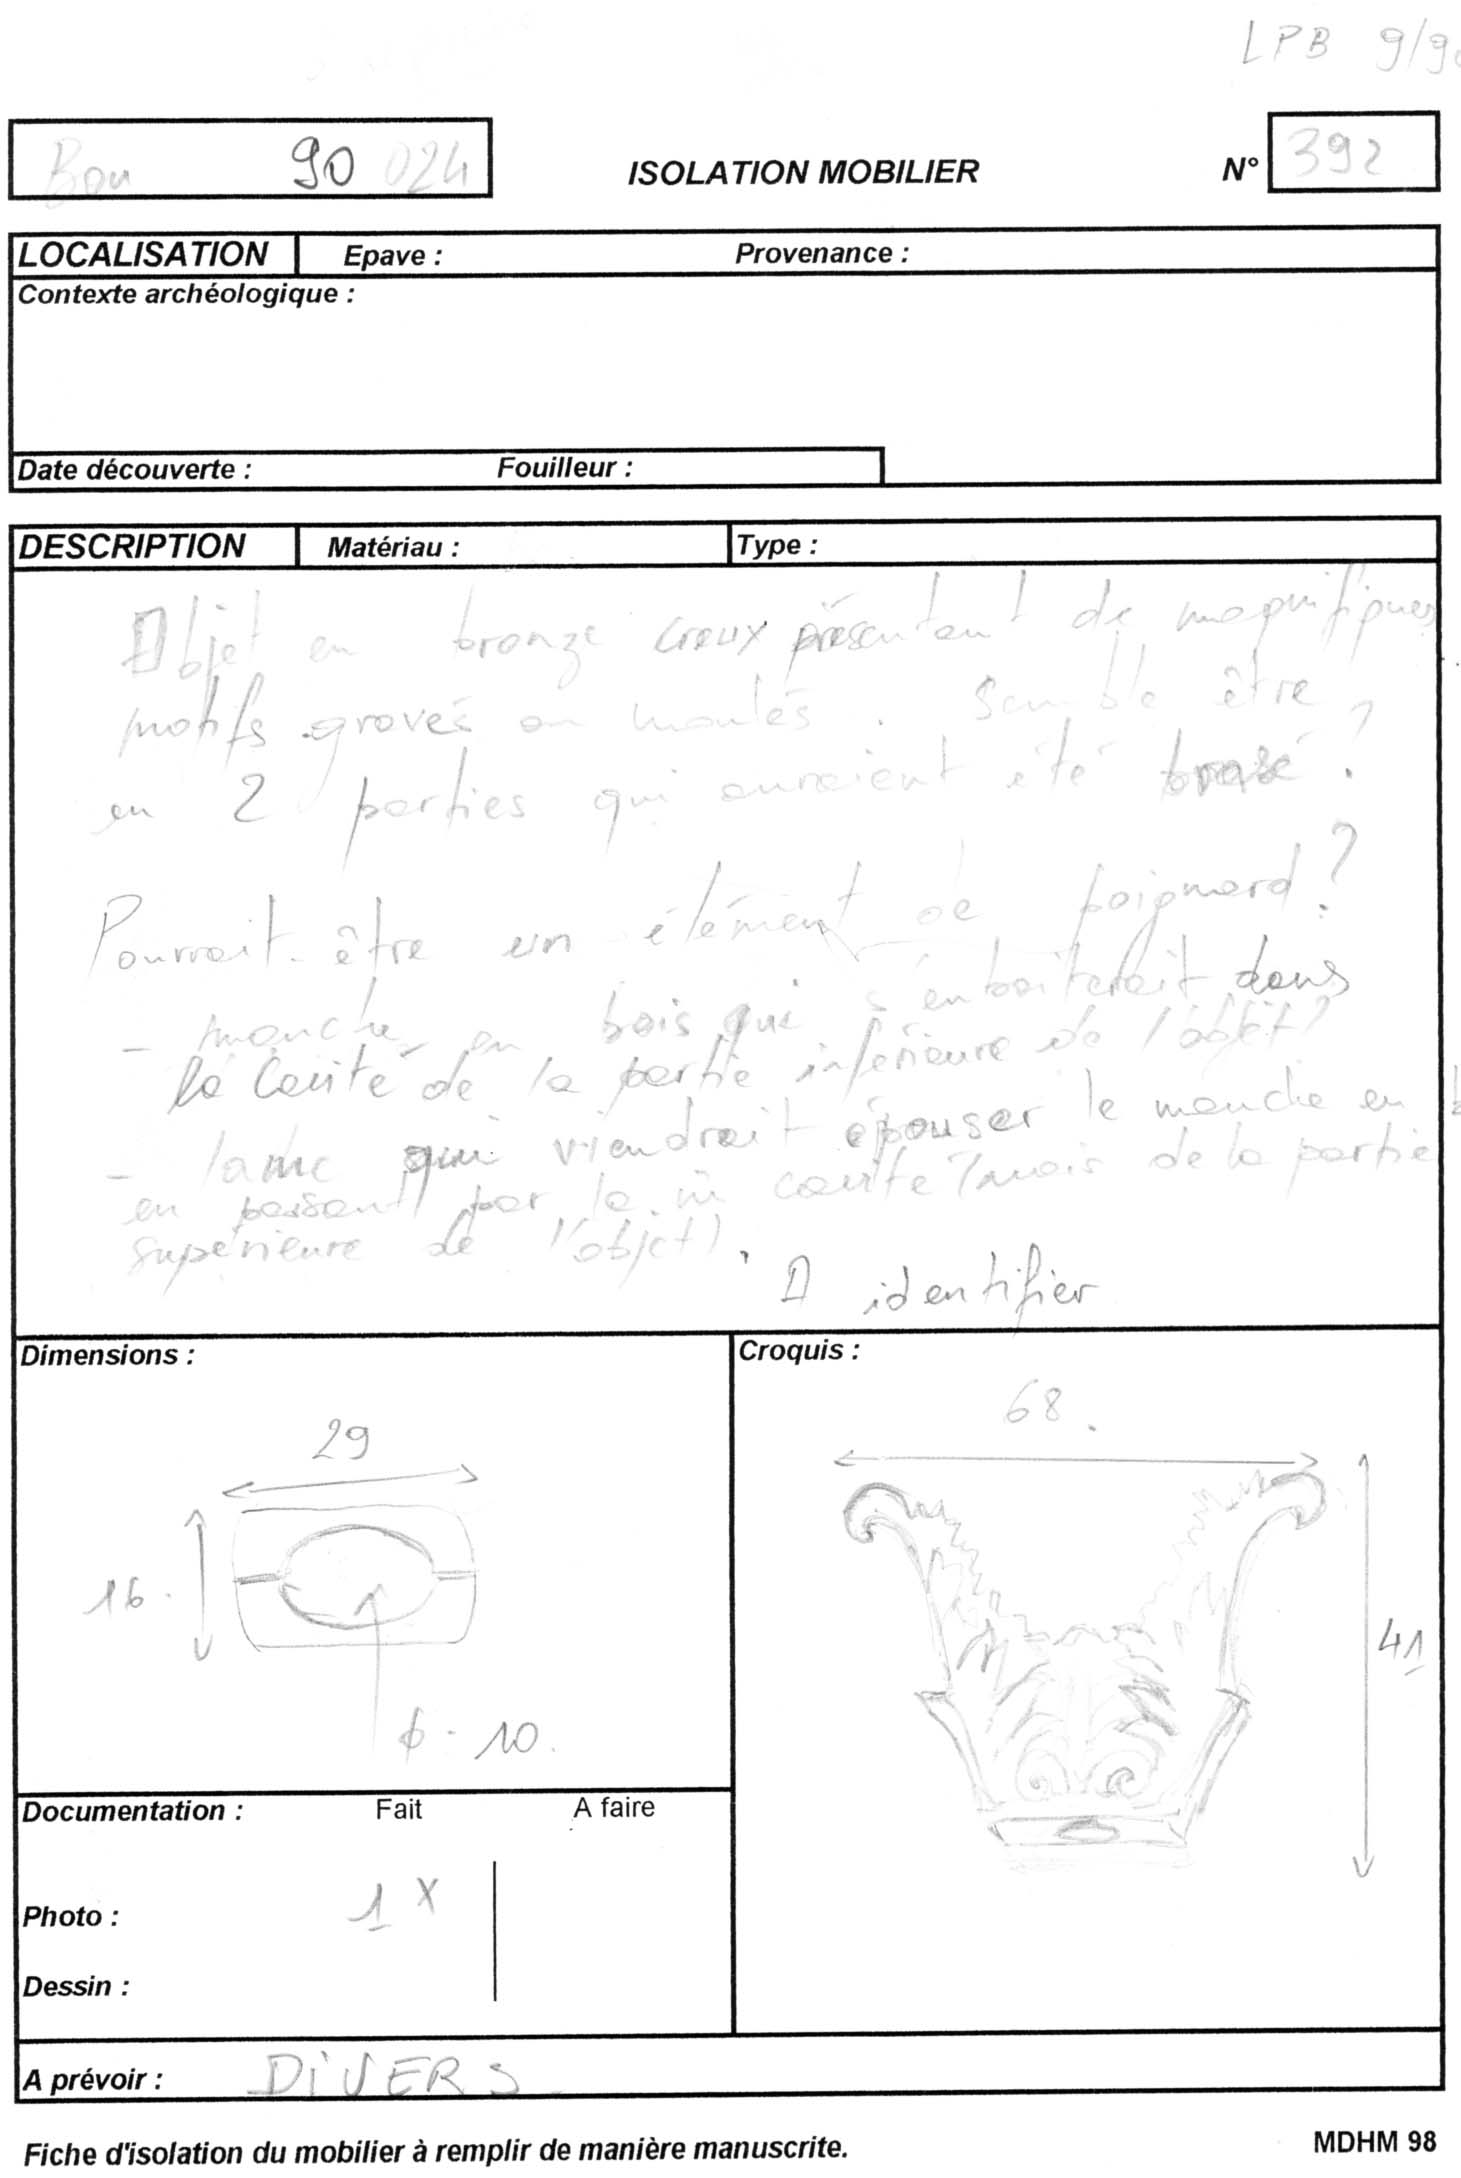 LPB 9/90
Bou 90 024
ISOLATION MOBILIER N° 392
LOCALISATION Epave : Provenance :
Contexte archéologique :
Date découverte : Fouilleur :
DESCRIPTION Matériau : Type :
Objet en bronze creux présentant de magnifiques
motifs gravés ou moulés. Semble être
en 2 parties qui auraient été brasé ?
Pourrait être un élément de poignard ?
- manche en bois qui s'emboiterait dans
la cavité de la partie inférieure de l'objet ?
- lame qui viendrait épouser le manche en b
en passant par la m̂ cavité (mais de la partie
supérieure de l'objet).
A identifier
Dimensions :
29
16
ϕ - 10
Croquis :
68
41
Documentation : Fait A faire
Photo : 1 X
Dessin :
A prévoir : DIVERS
Fiche d'isolation du mobilier à remplir de manière manuscrite. MDHM 98